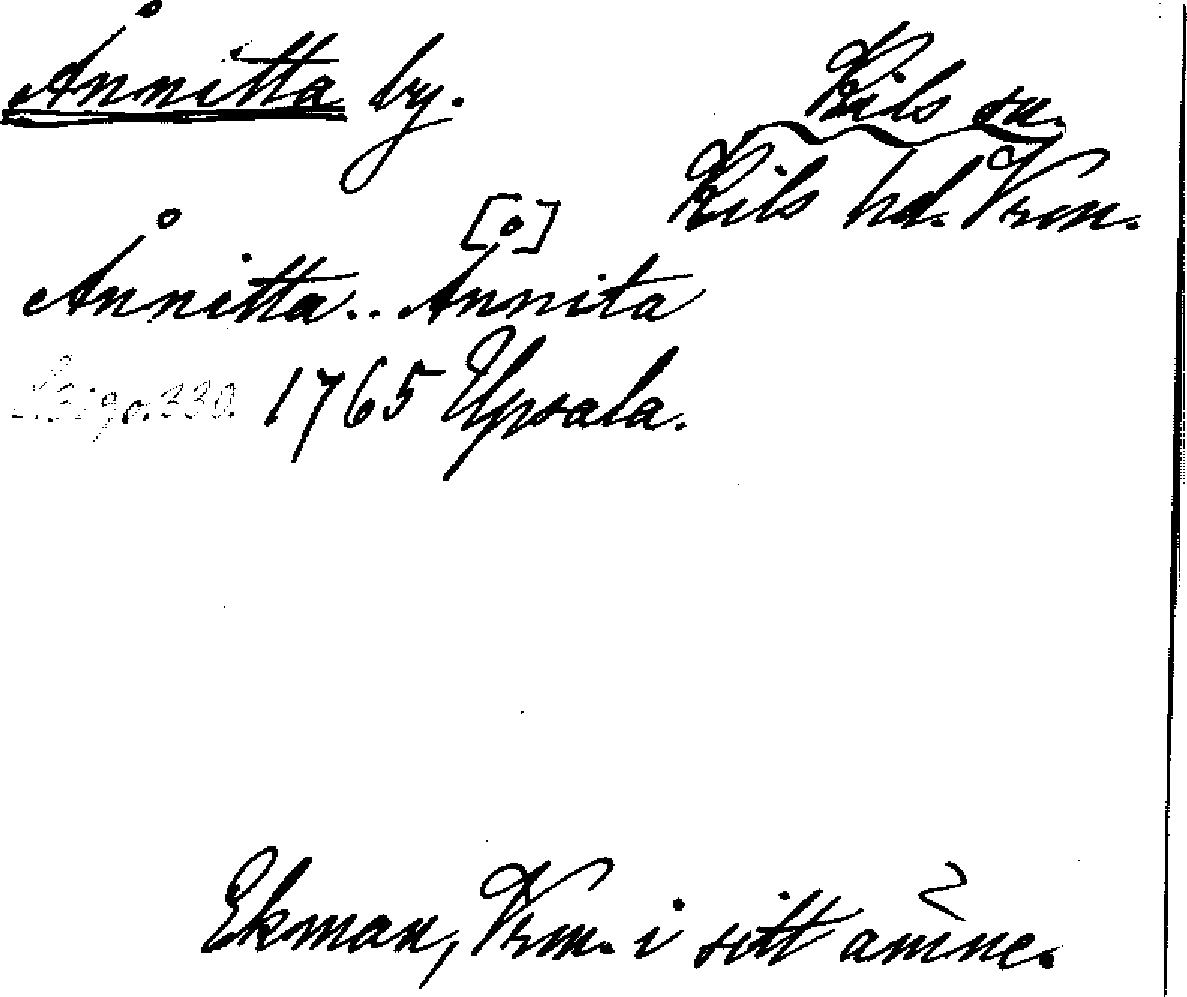 Ånnitta by.
Kils sn.
Kils hd. Vrm.
Ånnitta.. [Å]nnita
1765 Upsala.
Ekman, Vrm. i sitt ämne.